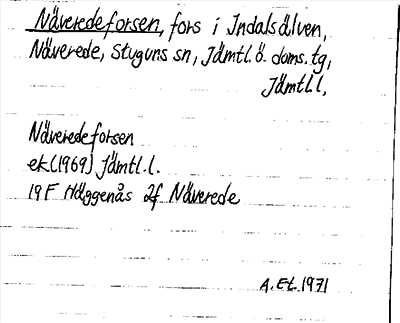 Näveredeforsen, fors i Indalsälven,
Näverede, Stuguns sn, Jämtl.ö. doms.tg,
Jämtl.l.
Näveredeforsen
ek(1969) Jämtl.l.
19F Häggenås 2f Näverede
A.Et.1971